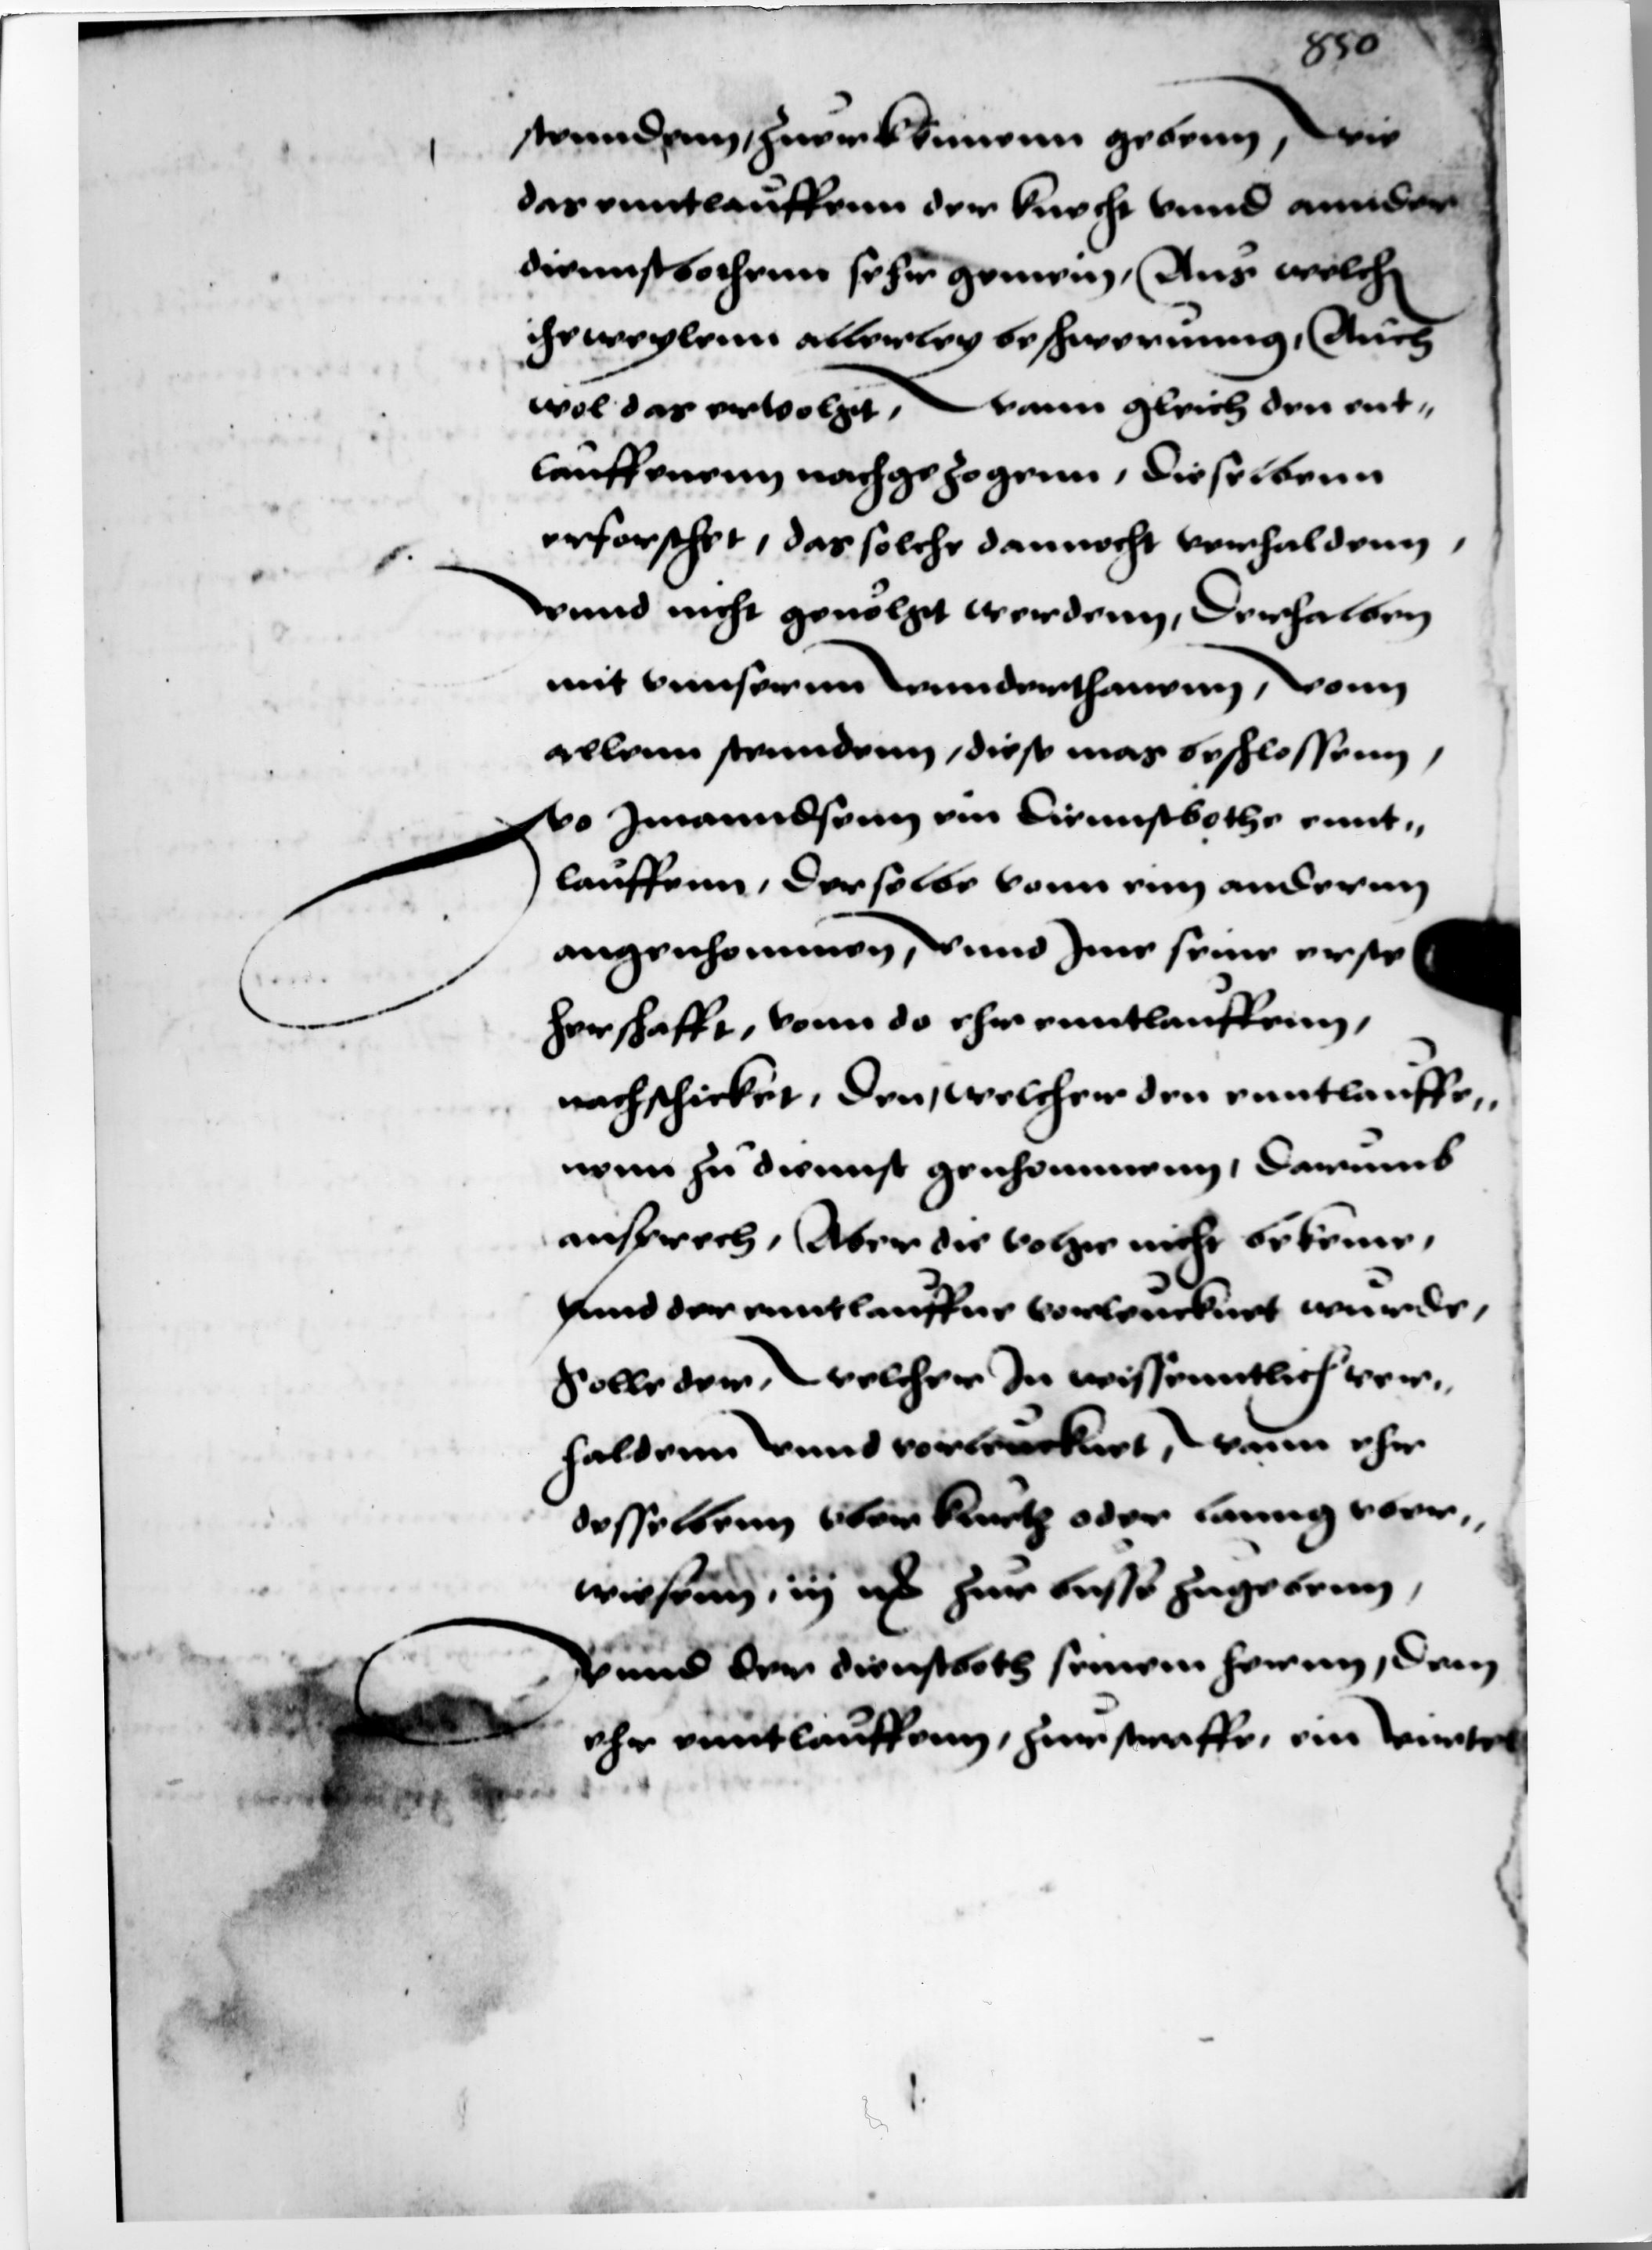 850
stenndenn, zuerkkennenn gebenn, Wie
das enntlauffenn der knecht vnnd annder
diennstbothenn sehr gemein, Aus welch
iheweylenn allerley beschwerunng, Auch
wol das ervolgt, Wann gleich den ent„
lauffenenn nachgezogenn, dieselbenn
erforschet, das solche dannocht verhaldenn,
Vnnd nicht geuolgt werdenn, Derhalben
mit vnnserenn Vnnderthanenn, Vonn
allenn stenndenn, diese mas beschlossenn,
Wo Imanndsenn ein Diennstbothe ennt„
lauffenn, Derselbe vonn einn anderenn
angenhommen, Vnnd Ime seine erste
herschafft, vonn do ehr enntlauffenn,
nachschicket, Den, welcher den enntlauffe„
nenn zu diennst genhommenn, Darumb
ansprech, Aber die volge nicht bekeme,
Vnnd der enntlauffne vorleucknet wurde,
Solle der, Welcher In wissenntlich ver„
haldenn Vnnd vorleucknet, Wann ehr
desselbenn vber kurtz oder lanng vber„
wiesenn, iij zur busse zugebenn,
Vnnd der dienstboth seinem herenn, Dem
ehr enntlauffenn, zur straffe, ein Viertel